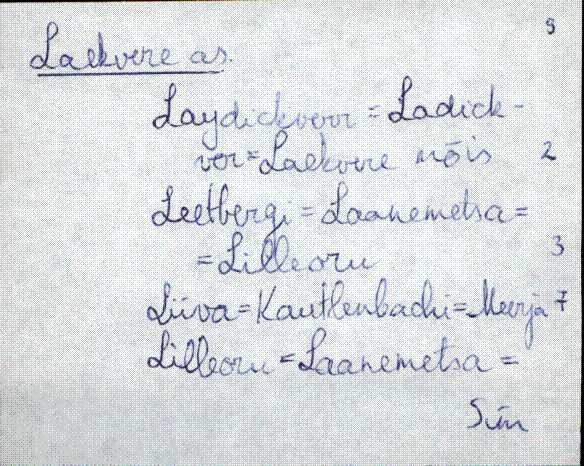 9
Laekvere as.
Laydickverr = Ladick-
ver = Laekvere mõis 2
Leetbergi = Laanemetsa =
= Lilleoru 3
Liiva = Kautlenbachi = Meerja 7
Lilleoru = Laanemetsa =